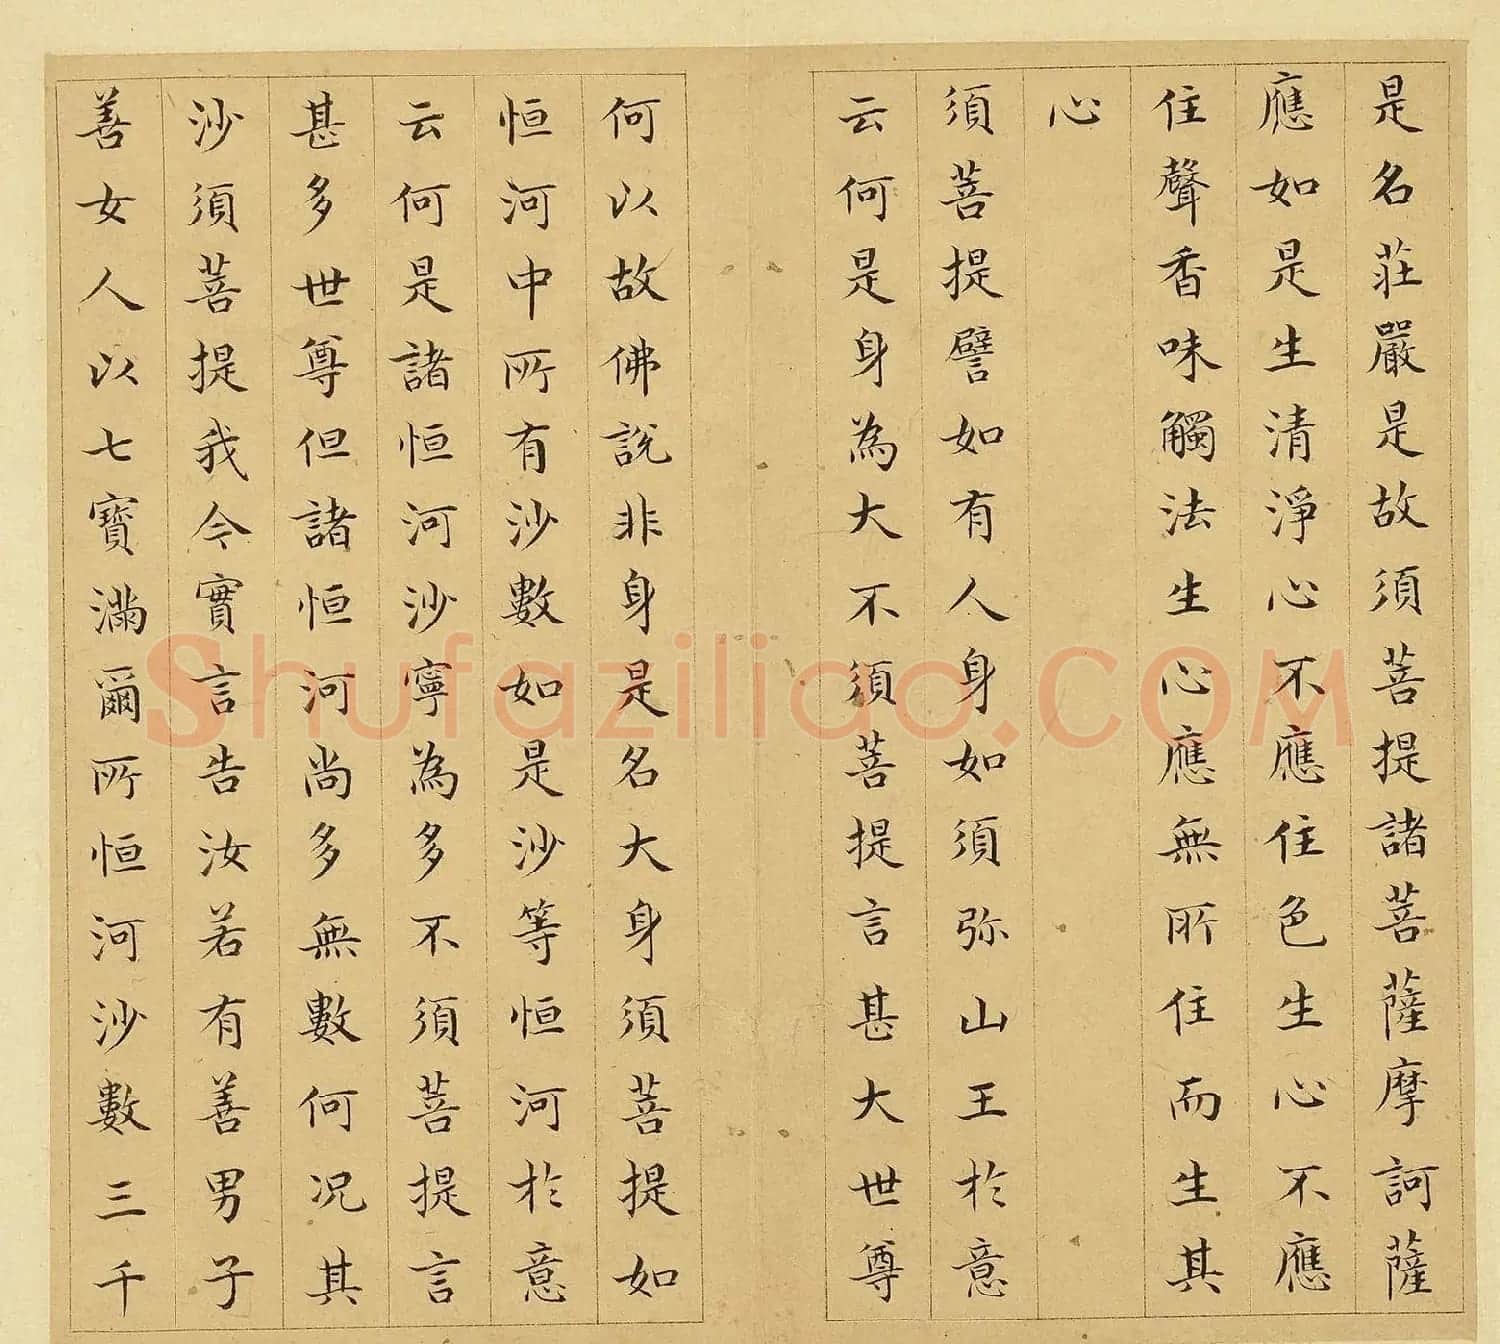 是名莊嚴是故須菩提諸菩薩摩訶薩
應如是生清淨心不應住色生心不應
住聲香味觸法生心應無所住而生其
心
須菩提譬如有人身如須弥山王於意
云何是身為大不須菩提言甚大世尊
何以故佛說非身是名大身須菩提如
恒河中所有沙數如是沙等恒河於意
云何是諸恒河沙寧為多不須菩提言
甚多世尊但諸恒河尚多無數何况其
沙須菩提我今實言告汝若有善男子
善女人以七寶滿爾所恒河沙數三千
Shufaziliao.COM